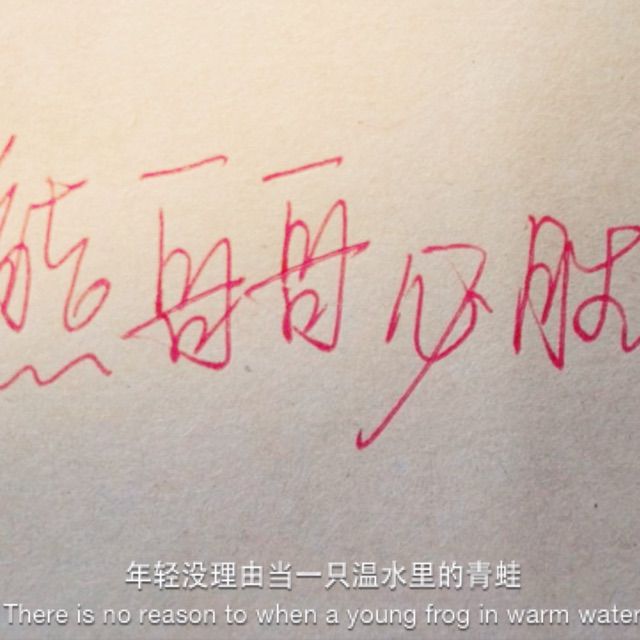 熊哥哥必
年轻没理由当一只温水里的青蛙
There is no reason to when a young frog in warm water